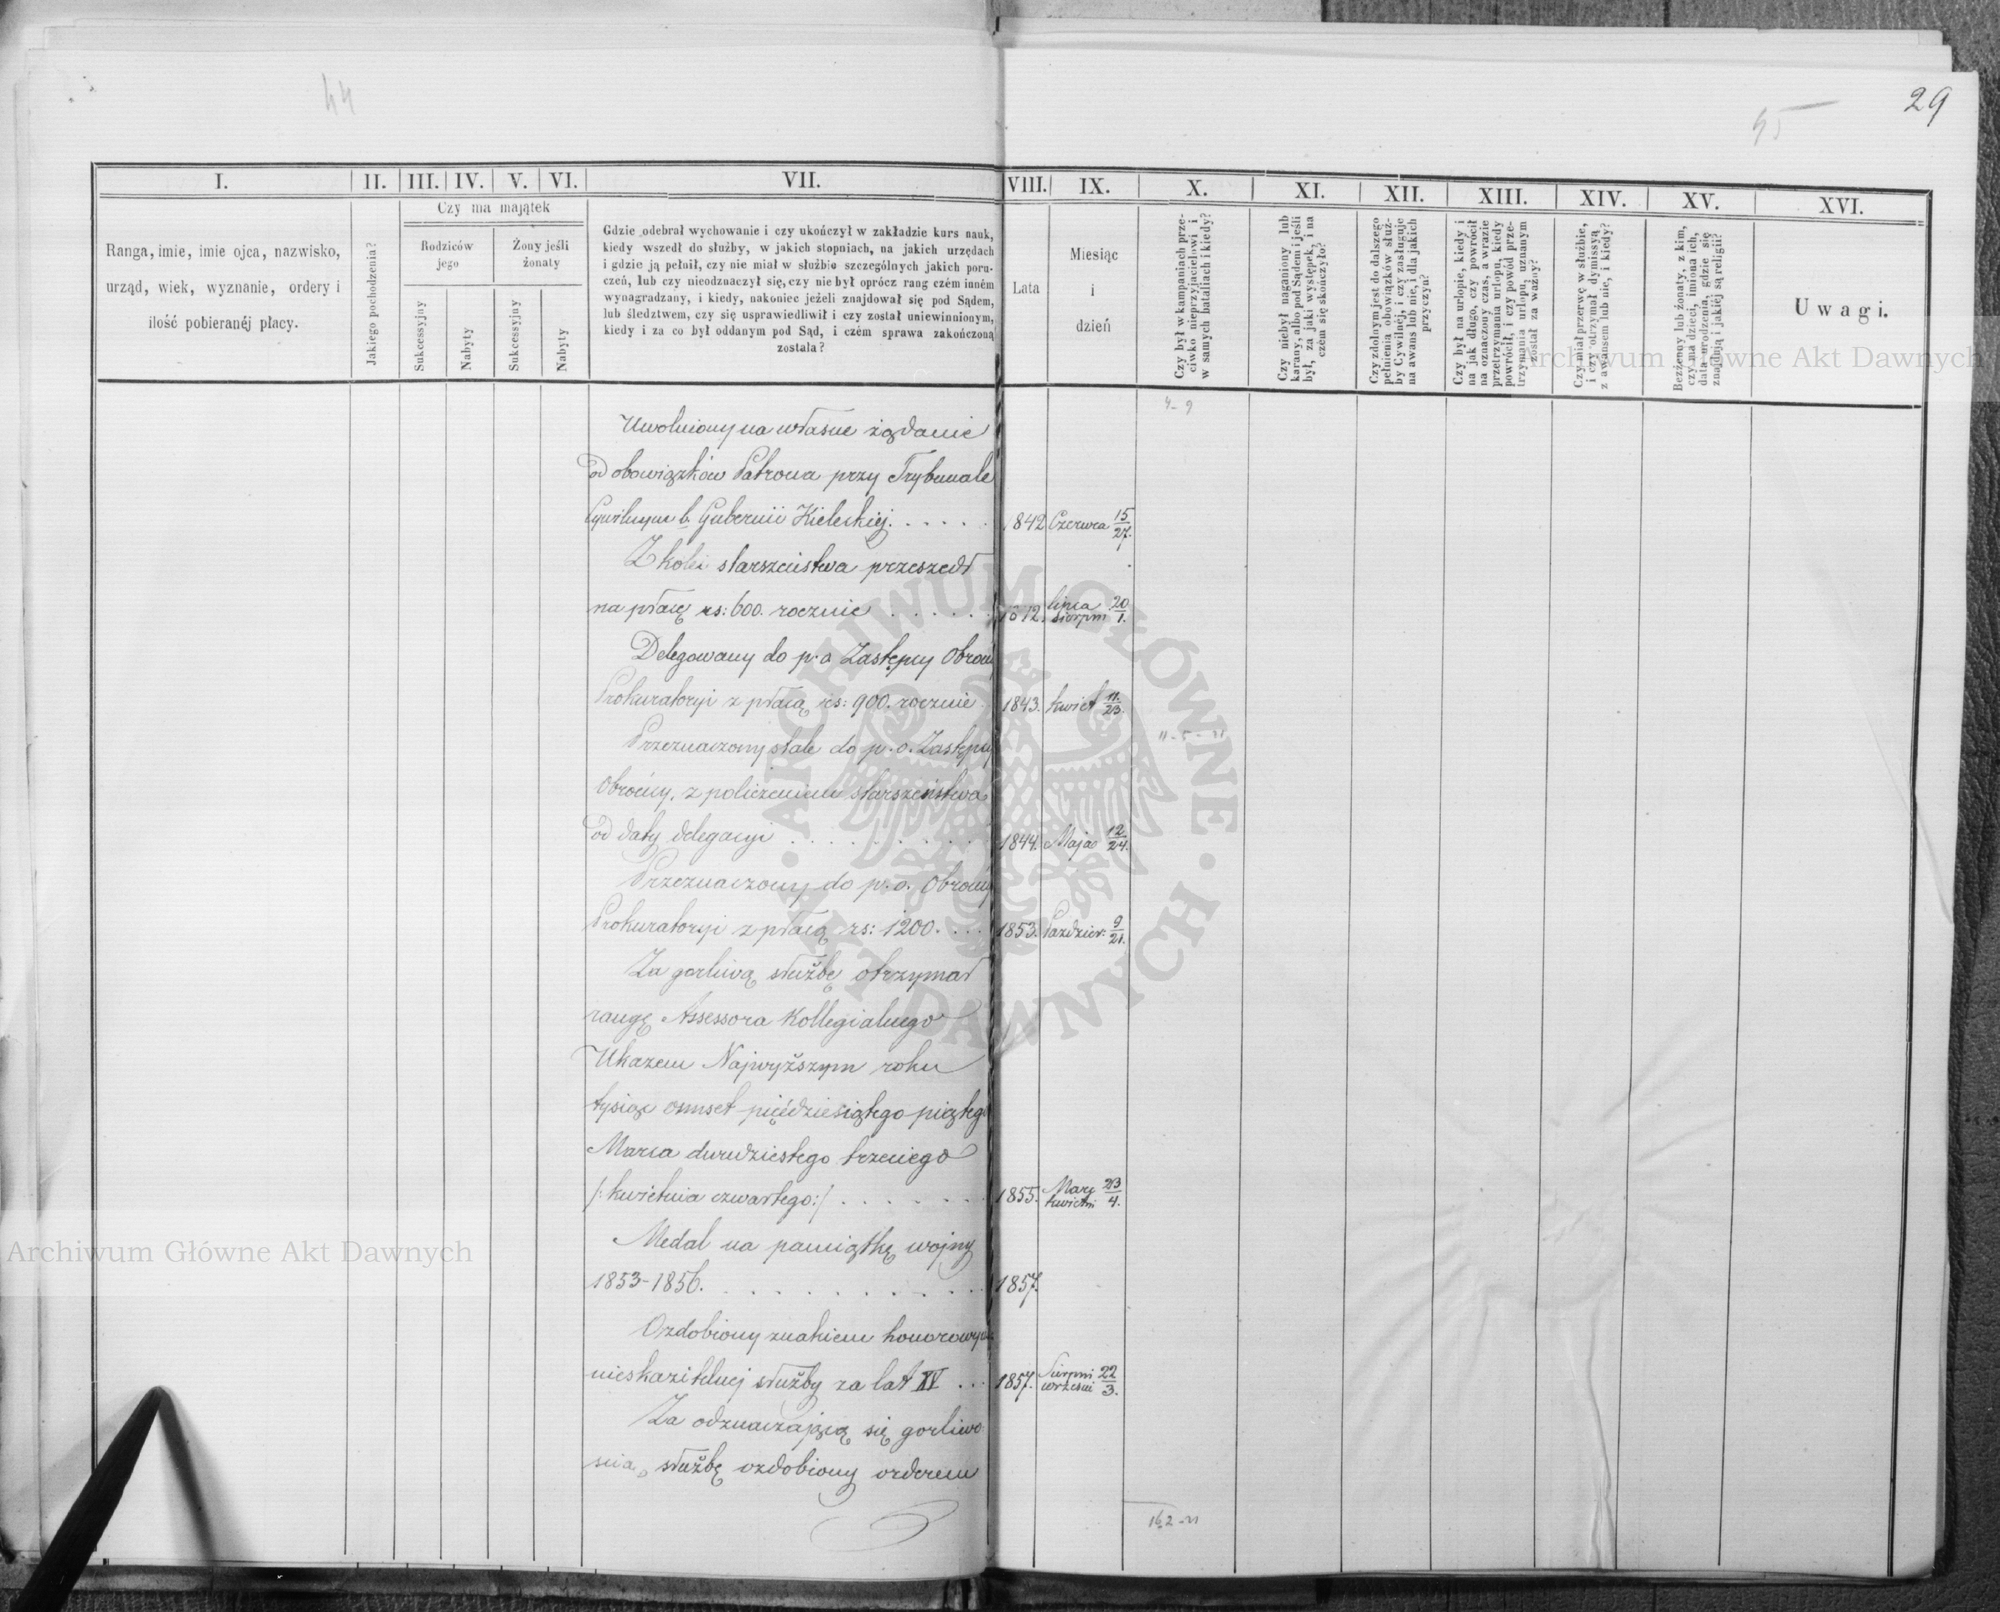 44
45
29
I. II. III. IV. V. VI. VII. VIII. IX. X. XI. XII. XIII. XIV. XV. XVI.
Ranga, imie, imie ojca, nazwisko,
urząd, wiek, wyznanie, ordery i
ilość pobieranéj płacy.
Jakiego pochodzenia?
Czy ma majątek
Rodziców
jego
Żony jeśli
żonaty
Sukcessyjny
Nabyty
Sukcessyjny
Nabyty
Gdzie odebrał wychowanie i czy ukończył w zakładzie kurs nauk,
kiedy wszedł do służby, w jakich stopniach, na jakich urzędach
i gdzie ją pełnił, czy nie miał w służbie szczególnych jakich poru-
czeń, lub czy nieodznaczył się, czy nie był oprócz rang czém inném
wynagradzany, i kiedy, nakoniec jeżeli znajdował się pod Sądem,
lub śledztwem, czy się usprawiedliwił i czy został uniewinnionym,
kiedy i za co był oddanym pod Sąd, i czém sprawa zakończoną
została?
Lata
Miesiąc
i
dzień
Czy był w kampaniach prze-
ciwko nieprzyjacielowi i
w samych bataliach i kiedy?
Czy niebył naganiony lub
karany, albo pod Sądem i jeśli
był, za jaki występek, i na
czém się skończyło?
Czy zdolnym jest do dalszego
pełnienia obowiązków służ-
by Cywilnéj, i czy zasługuje
na awans lub nie, i dla jakich
przyczyn?
Czy był na urlopie, kiedy i
na jak długo, czy powrócił
na oznaczony czas, a w razie
przetrzymania urlopu, kiedy
powrócił, i czy powód prze-
trzymania urlopu, uznanym
został za ważny?
Czy miał przerwę w służbie,
i czy otrzymał dymissyą
z awansem lub nie, i kiedy?
Bezżenny lub żonaty, z kim,
czy ma dzieci, imiona ich,
data urodzenia, gdzie się
znajdują i jakiéj są religii?
Uwagi.
4-9
Uwolniony na własne żądanie
od obowiązków Patrona przy Trybunale
Cywilnym b. Gubernii Kieleckiej. 1842 Czerwca 15/27.
Z kolei starszeństwa przeszedł
na płacę rs: 600. rocznie 1842. lipca 20/sierpni 1.
Delegowany do p. o Zastępcy Obroń
Prokuratoryi z płacą rs: 900. rocznie 1843. kwiet 11./23.
Przeznaczony stale do p. o. Zastępcy
11-5-21
Obrońcy, z policzeniem starszeństwa
od daty delegacyi 1844. Maja 12/24.
Przeznaczony do p. o. Obrońcy
Prokuratoryi z płacą rs: 1200. 1853. Pazdzier: 9/21.
Za gorliwą służbę otrzymał
rangę Assessora Kollegialnego
Ukazem Najwyższym roku
tysiąc osmset pięćdziesiątego piątego
Marca dwudziestego trzeciego
/: kwietnia czwartego:/ 1855. Marc 23/kwietni 4.
Medal na pamiątkę wojny
1853-1856. 1857.
Ozdobiony znakiem honorowym
nieskazitelnej służby za lat XV 1857. Sierpni 22/wrzesni 3.
Za odznaczającą się gorliwo
scią, służbę ozdobiony orderem
162-21
Archiwum Główne Akt Dawnych
Archiwum Główne Akt Dawnych
ARCHIWUM GŁÓWNE · AKT DAWNYCH ·